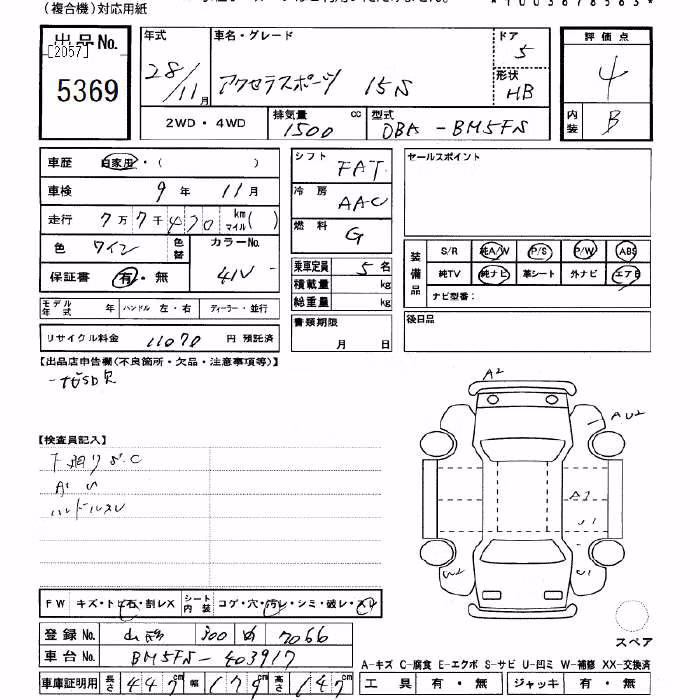 (複合機)対応用紙
出品No.
[2057]
5369
年式
28/11月
車名・グレード
アクセラスポーツ 15S
ドア
5
形状
HB
評価点
4
内装
B
2WD・4WD
排気量
1500 cc
型式
DBA-BM5FS
車歴 自家用・( )
車検 9年 11月
走行 7万7千470 km マイル( )
色 ワイン 色替
カラーNo.
41V
保証書 有・無
モデル年式 年 ハンドル 左・右 ディーラー・並行
リサイクル料金 11070 円 預託済
シフト FAT
冷房 AAC
燃料 G
乗車定員 5名
積載量 kg
総重量 kg
書類期限
月 日
セールスポイント
装備品
S/R 純A/W P/S P/W ABS
純TV 純ナビ 革シート 外ナビ エアB
ナビ型番:
後日品
【出品店申告欄(不良箇所・欠品・注意事項等)】
ナビSD欠
【検査員記入】
下廻りS.C
ハンドルスレ
A2
AU2
A1
U1
W2
スペア
FW キズ・トビ石・割レX シート内装 コゲ・穴・汚レ・シミ・破レ・スレ
登録No. 300 7066
車台No. BM5FS-403917
車庫証明用 長さ 447cm 幅 179cm 高さ 147cm
A-キズ C-腐食 E-エクボ S-サビ U-凹ミ W-補修 XX-交換済
工具 有・無 ジャッキ 有・無